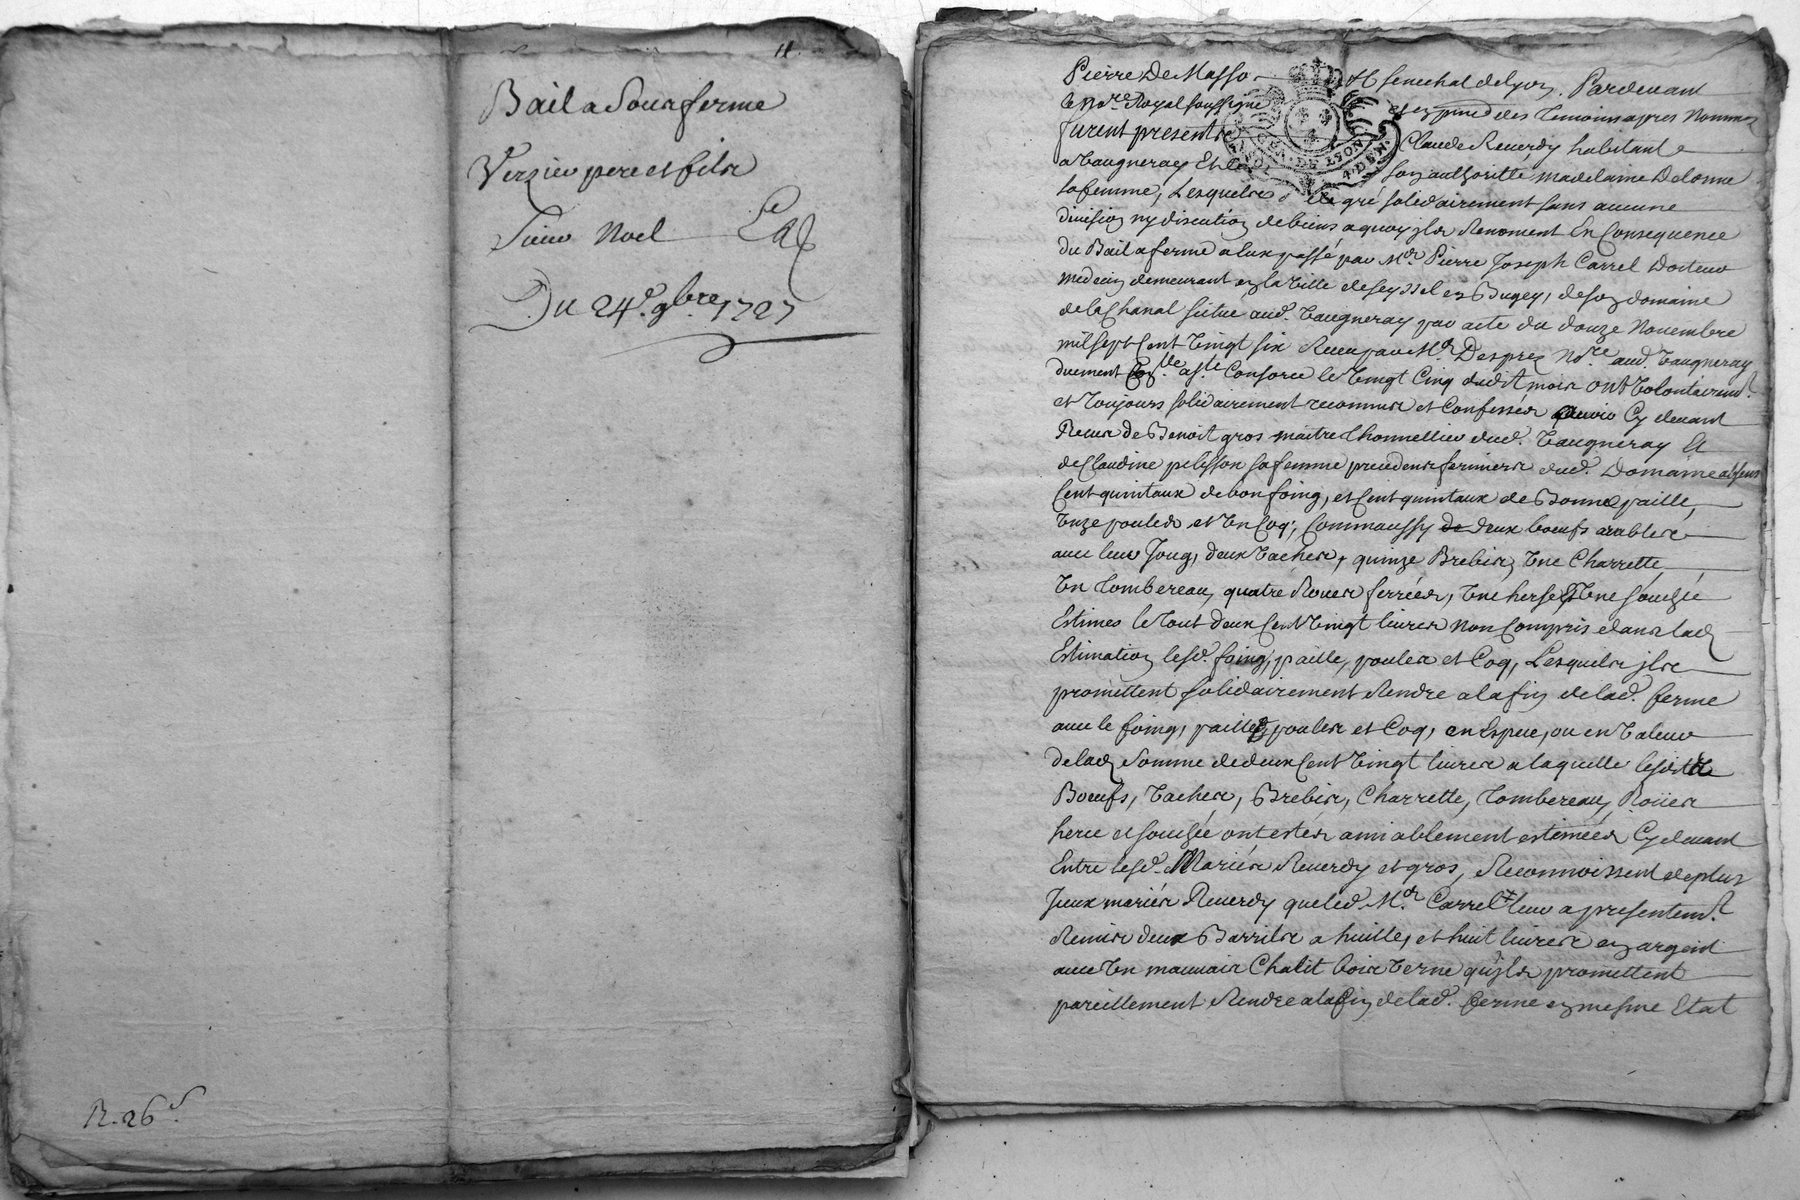 11
Bail a Sousferme
Verzieu pere et fils
Sieur Noel
Du 24e. 9bre 1727
R. 26s.
Pierre De Masso senechal de Lyon. Pardevant
le Nore Royal soussigné et en pnce des temoins apres Nommez
furent presents Claude Reverdy habitant
a Vaugneray Et de son authoritté madelaine Delorme
sa femme, Lesquels de gré solidairement sans aucune
division ny discution de biens a quoy ils Renoncent En Consequence
du Bail a ferme a eux passé par Mr. Pierre Joseph Carrel Docteur
medecin demeurant en la Ville de seyssel en Bugey, de son domaine
de la Chanal scitué aud. Vaugneray par acte du douze Novembre
mil sept Cent Vingt six Receu par Me Desprez Nore aud. Vaugneray
duement Conlle a ste Consorce le Vingt Cinq dudit mois ont Volontairemt.
et Toujours solidairement reconnus et Confessés avoir Cy devant
Receus de Benoit gros maitre Thonnellier dud. Vaugneray Et
de Claudine pelisson sa femme precedens fermiers dud. Domaine absens
Cent quintaux de bon foing, et Cent quintaux de Bonne paille,
Onze poules et Un Coq, Comm'aussy de deux boeufs arables
avec leur Joug, deux Vaches, quinze Brebis, Une Charrette,
Un Tombereau, quatre Roues ferrées, Une herse Et Une
Estimes le Tout deux Cent Vingt livres non Compris dans lad.
Estimation lesd. foing, paille, poules et Coq, Lesquels ils
promettent solidairement Rendre a la fin de lad. ferme
avec le foing, paille, poules et Coq, en Espece, ou en Valeur
de lad. somme de deux Cent Vingt livres a laquelle lesdits
Boeufs, Vaches, Brebis, Charrette, Tombereau, Roües
herce et ont estés amiablement estimées Cy devant
Entre lesd. Mariés Reverdy et gros, Reconnoissent de plus
Iceux mariés Reverdy que led. Mr. Carrel leur a presentemt.
Remis deux Barrils a huille, et huit livres en argent
avec Un mauvais Chalit bois Verne qu'ils promettent
pareillement Rendre a la fin de lad. ferme en mesme Etat